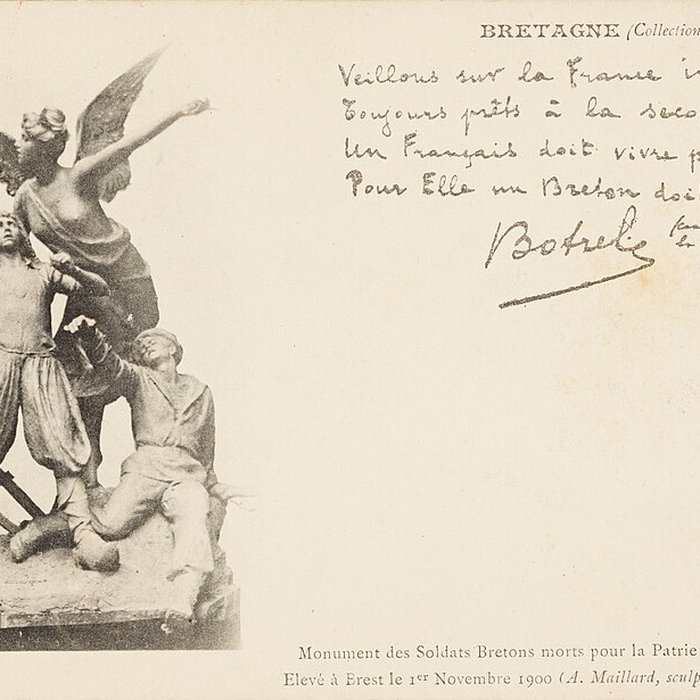 BRETAGNE (Collection
Veillons sur la France
Toujours prêts à la
Un Français doit vivre
Pour Elle un Breton doi
Botrel
Monument des Soldats Bretons morts pour la Patrie
Elevé à Brest le 1er Novembre 1900 (A. Maillard, sculp